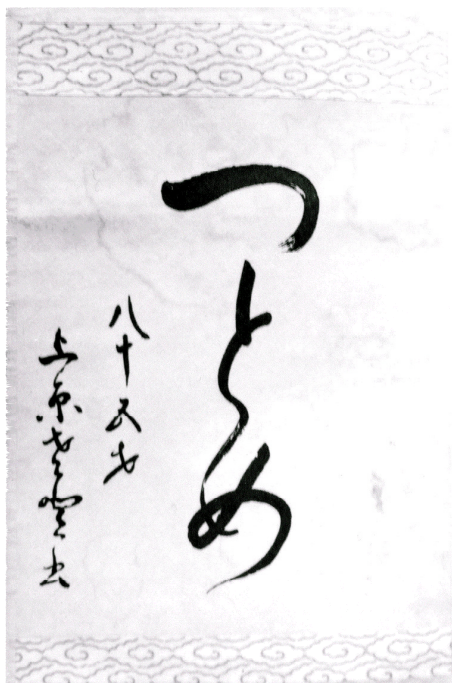 つとめ
八十五才
上原